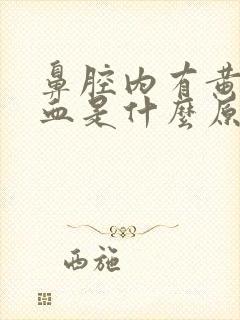 鼻腔内有黄
血是什麼原
西施